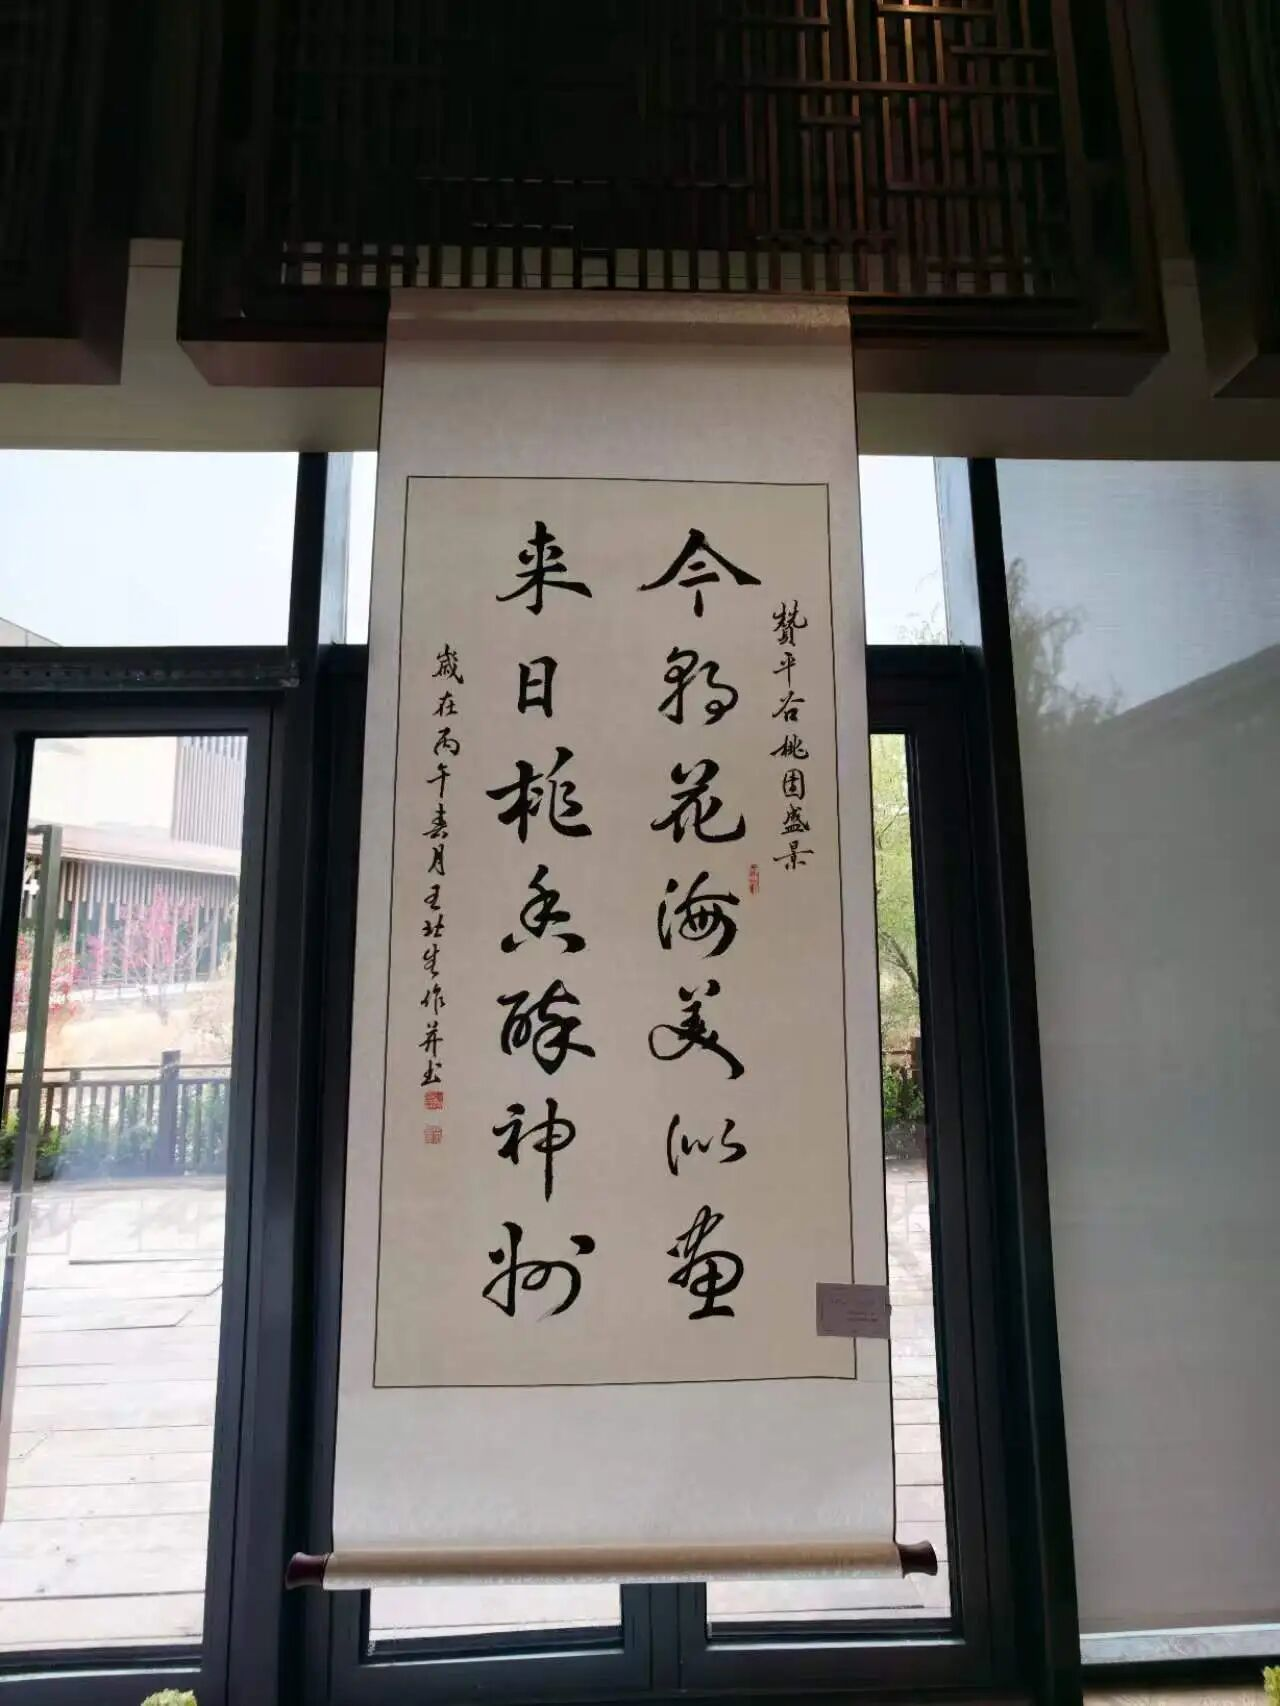 赞平谷桃园盛景
今朝花海美似画
来日桃香醉神州
岁在丙午春月王壮生作并书